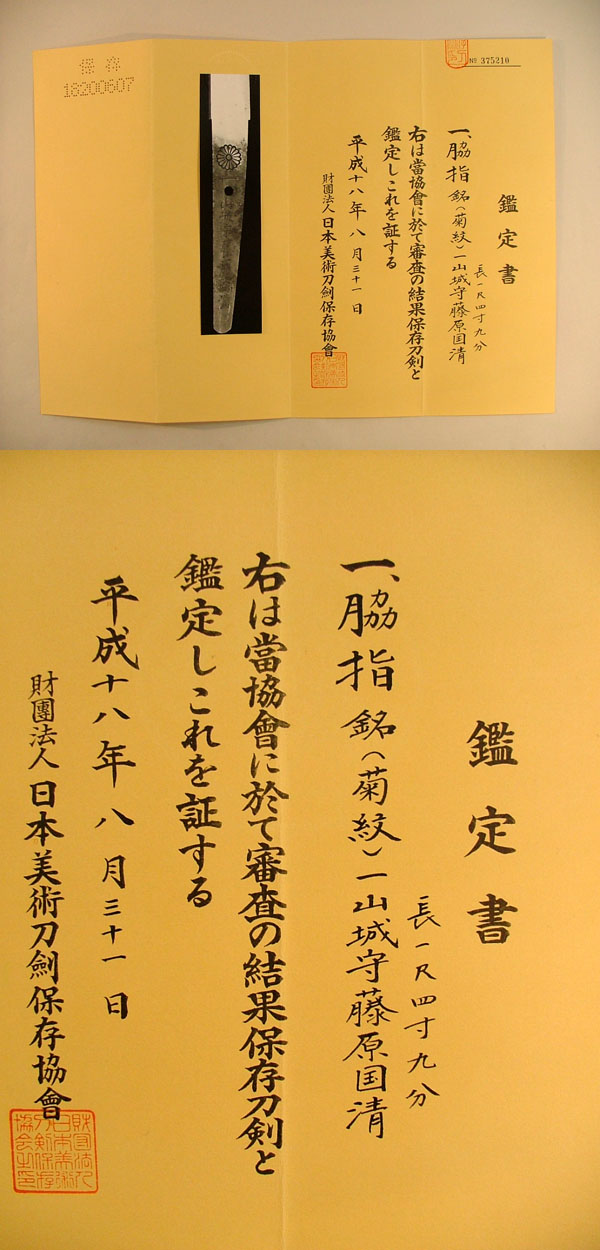 保存
18200607
№ 375210
鑑定書
長一尺四寸九分
一、脇指 銘(菊紋)一山城守藤原国清
右は當協會に於て審査の結果保存刀剣と
鑑定しこれを証する
平成十八年八月三十一日
財團法人日本美術刀劍保存協會
鑑定書
長一尺四寸九分
一、脇指 銘(菊紋)一山城守藤原国清
右は當協會に於て審査の結果保存刀剣と
鑑定しこれを証する
平成十八年八月三十一日
財團法人日本美術刀劍保存協會